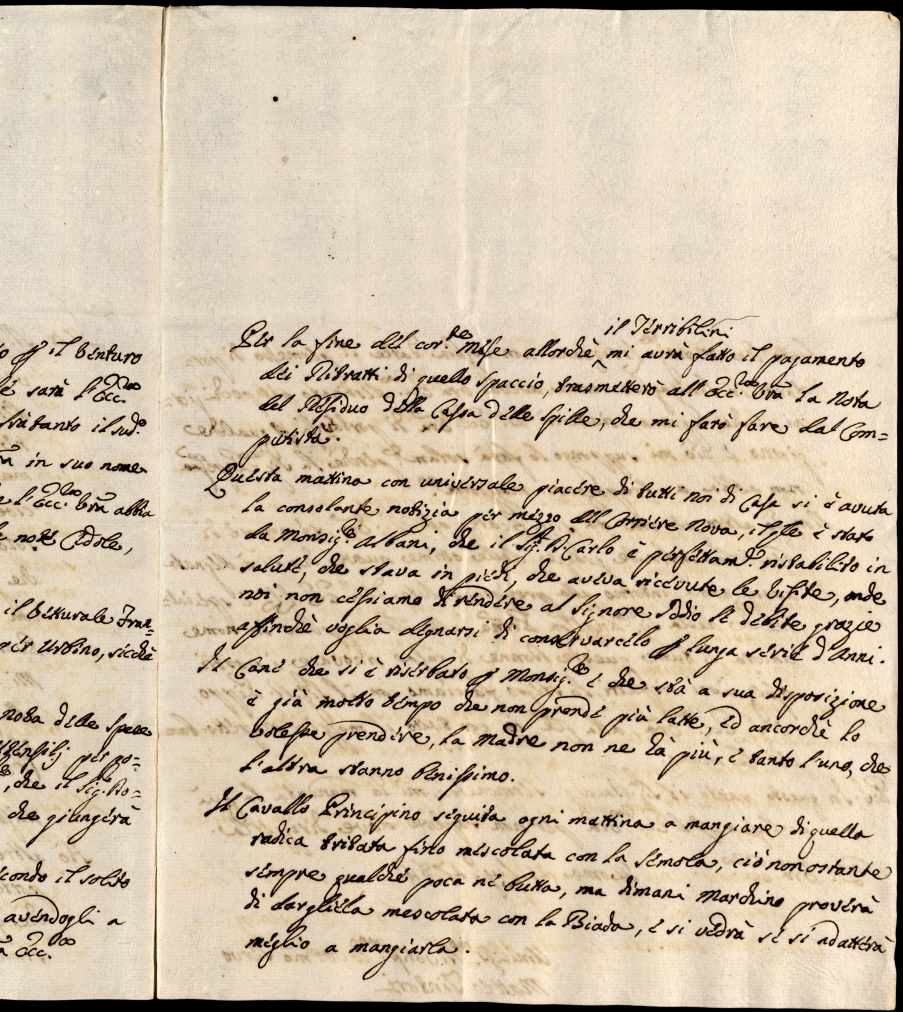 to p il venturo
è sarà l'Ecc.
frattanto il sud.º
in suo nome
e l'Ecc.za Vrã abbia
note Cedole,
il Vetturale Fran=
per Urbino, sicchè
nota delle spese
utensilj per po=
che il Sig.
che giungerà
condo il solito
avendogli a
Ecc.za
il Terribilini
Per la fine del cor.te Mese allorchè mi avrà fatto il pagamento
dei Ritratti di quello spaccio, trasmetterò all'Ecc.za Vrã la Nota
del Residuo della Cassa delle Spille, che mi farò fare dal Com=
putista.
Questa mattina con universale piacere di tutti noi di Casa si è avuta
la consolante notizia per mezzo del Corriere Nova, il ple è stato
da Monsig.re Albani, che il Sig.r D. Carlo è perfettam.te ristabilito in
salute, che stava in piedi, che aveva ricevute le visite, onde
noi non cessiamo di rendere al Signore Iddio le debite grazie
affinchè voglia degnarsi di conservarcelo p lunga serie d'Anni.
Il Cane che si è riserbato p Monsig.re e che stà a sua disposizione
è già molto tempo che non prende più latte, ed ancorchè lo
volesse prendere, la Madre non ne hà più, e tanto l'uno, che
l'altra stanno benissimo.
Il Cavallo Principino seguita ogni mattina a mangiare di quella
radica tritata fino mescolata con la semola, ciò non ostante
sempre qualche poca ne butta, ma dimani Marchino proverà
di dargliela mescolata con la Biada, e si vedrà se si adatterà
meglio a mangiarla.